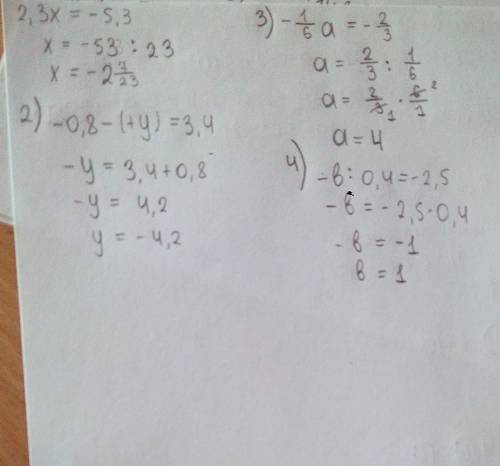 2,3x = -5,3
x = -53 : 23
x = -2 7/23
2) -0,8-(+y)=3,4
-y = 3,4+0,8
-y = 4,2
y = -4,2
3) -1/6 a = -2/3
a = 2/3 : 1/6
a = 2/3 1 · 6/1 2
a = 4
4) -в : 0,4 = -2,5
-в = -2,5·0,4
-в = -1
в = 1